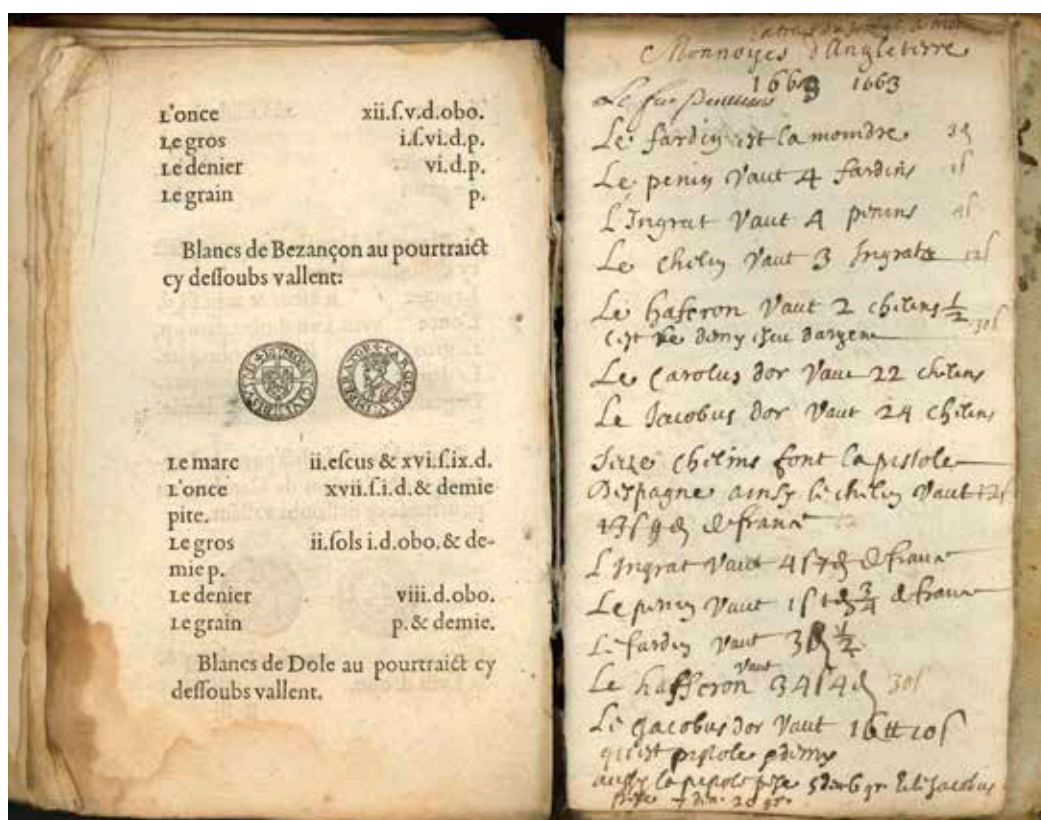 L'once xii.ſ.v.d.obo.
Le gros i.ſ.vi.d.p.
Le denier vi.d.p.
Le grain p.
Blancs de Bezançon au pourtraict
cy deſſoubs vallent:
Le marc ii.eſcus & xvi.ſ.ix.d.
L'once xvii.ſ.i.d.& demie
pite.
Le gros ii.ſols i.d.obo.& de-
mie p.
Le denier viii.d.obo.
Le grain p.& demie.
Blancs de Dole au pourtraict cy
deſſoubs vallent.
Monnoyes d'Angleterre
1663 1663
Le fardin est la moindre
Le penin Vaut 4 fardins
L'Ingrat Vaut 4 penins 4ſ
Le chelin Vaut 3 Ingrats 12ſ
Le haferon Vaut 2 chelins 1/2 30ſ
c'est le demy escu dargent
Le Carolus dor Vaut 22 chelins
Le Jacobus dor Vaut 24 chelins
chelins font la pistole
Despagne ainsy le chelin Vaut
de france
L'Ingrat Vaut 4ſ 7d de france
Le penin Vaut 1ſ 1d 3/4 de france
Le fardin Vaut 3d 1/2
Le hafferon Vaut 34ſ 4d 30ſ
Le Jacobus dor Vaut 16tt 10ſ
qui est pistole demy
la pistole le Jacobus